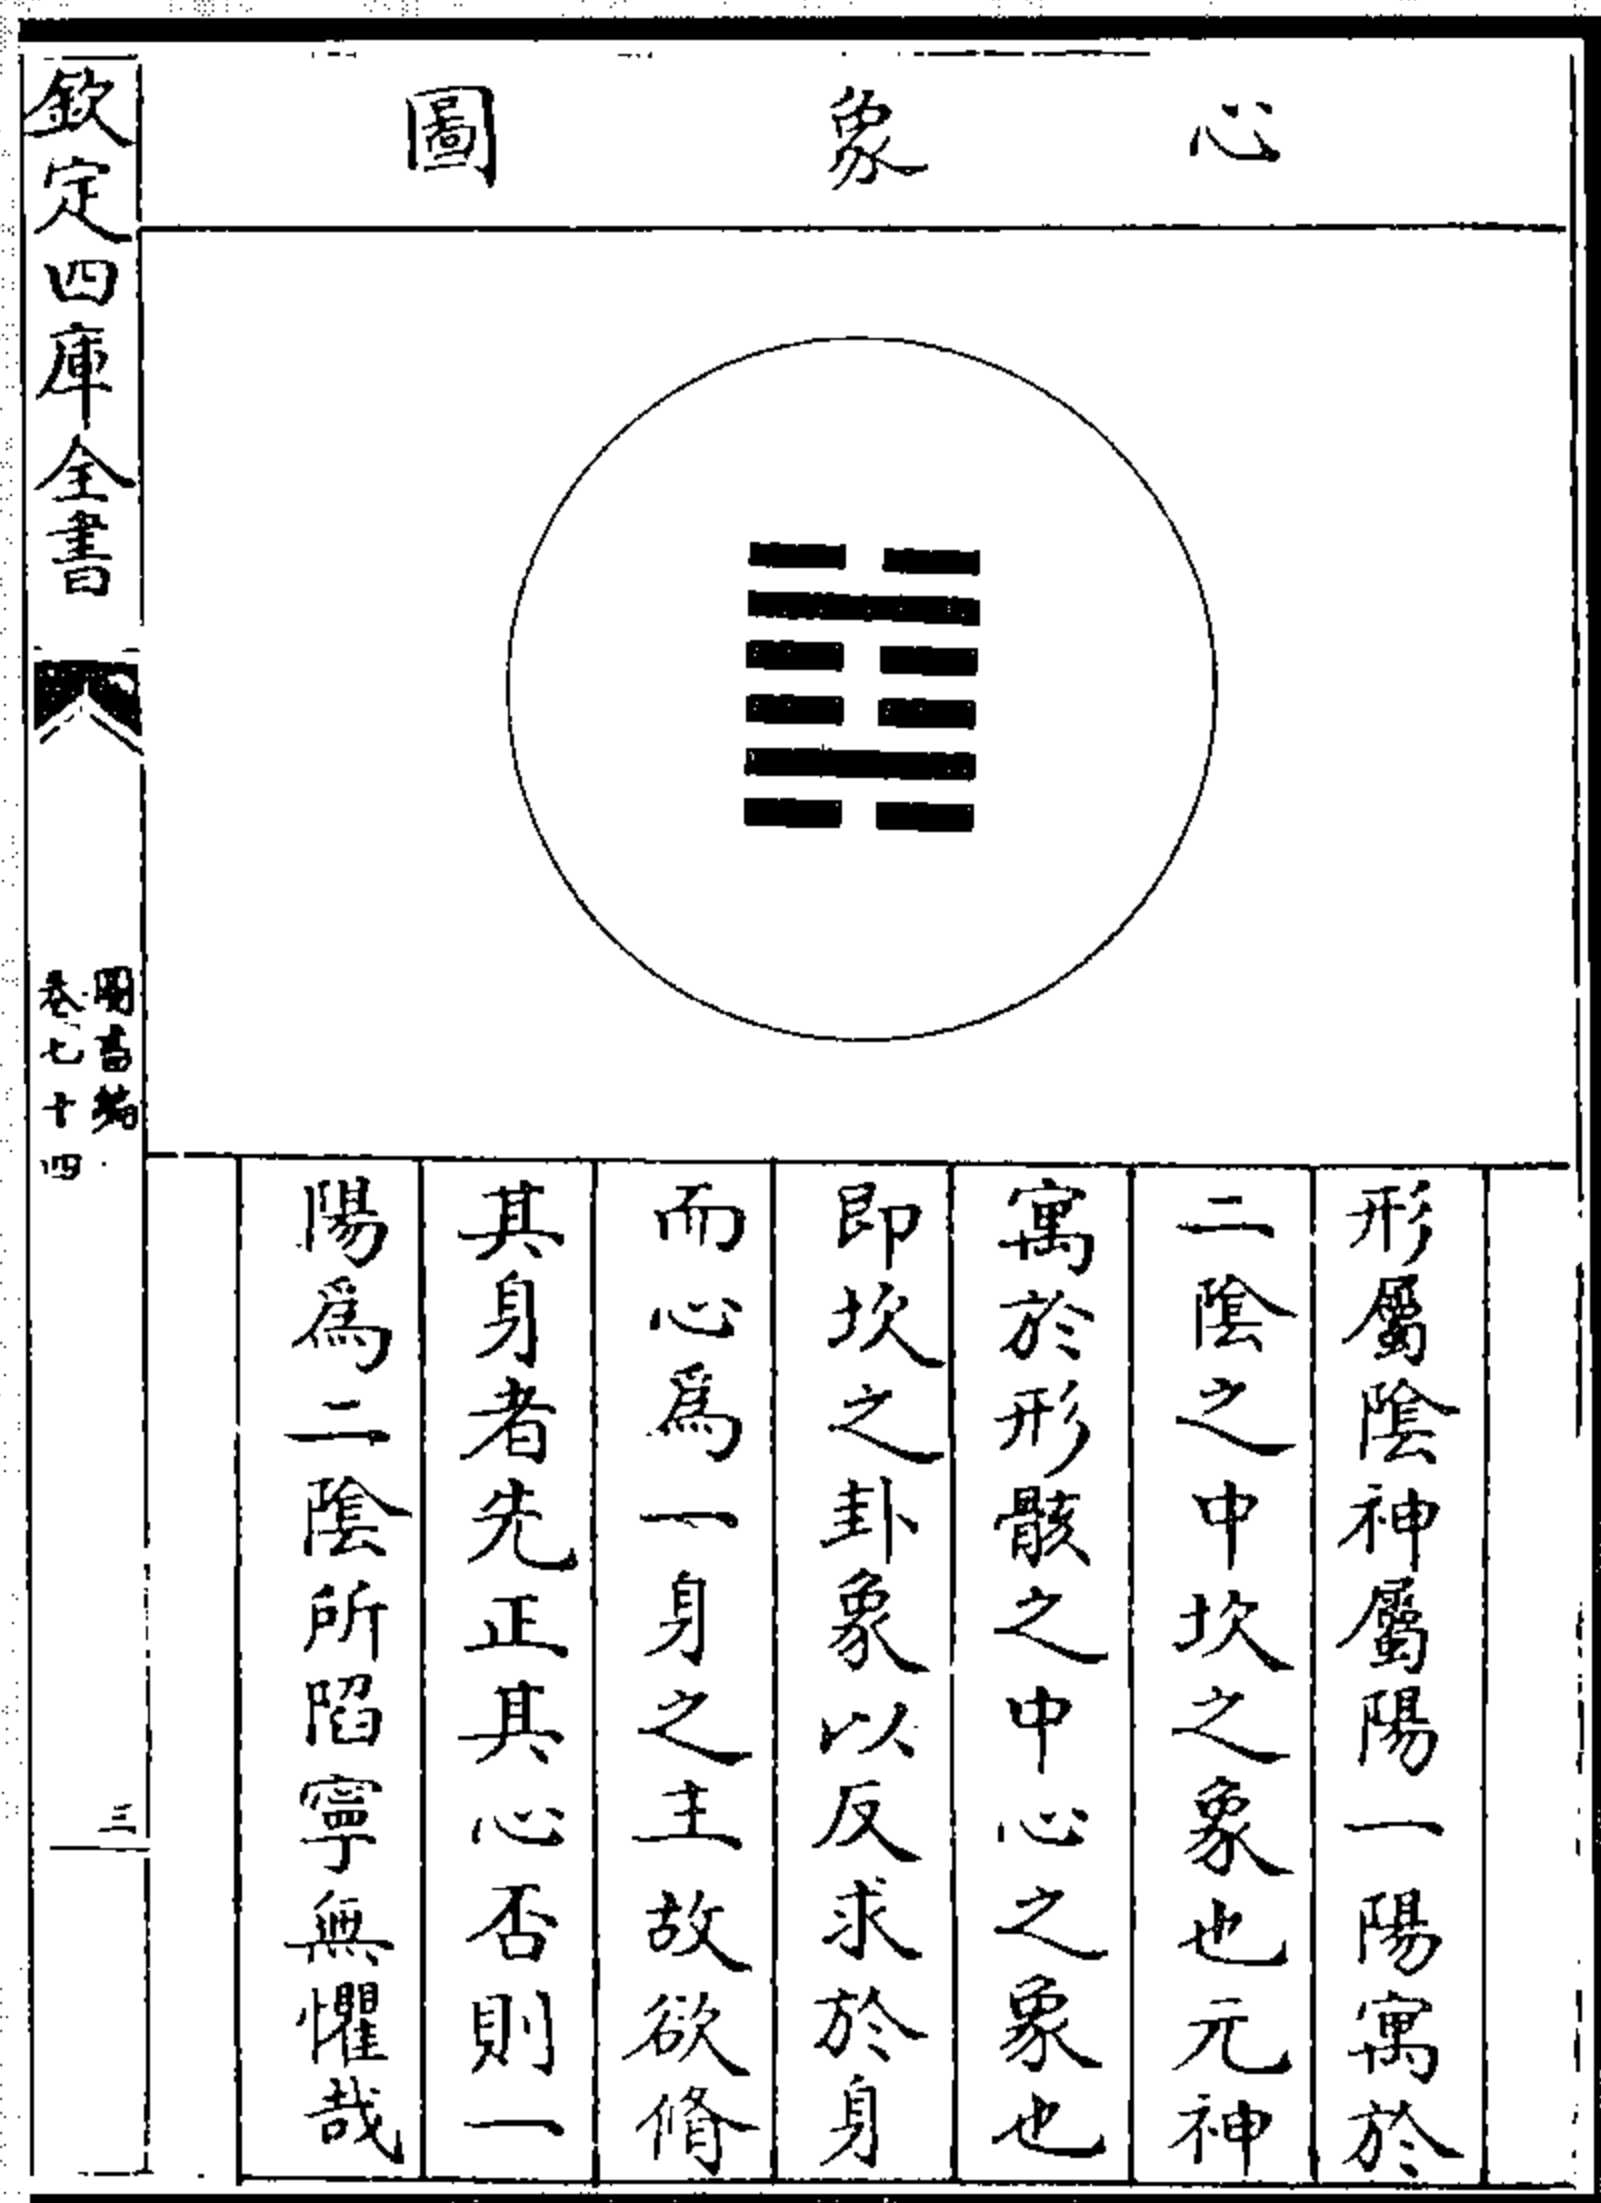 心象圖
形屬陰神屬陽一陽寓於
二陰之中坎之象也元神
寓於形骸之中心之象也
即坎之卦象以反求於身
而心為一身之主故欲脩
其身者先正其心否則一
陽為二陰所陷寧無懼哉
欽定四庫全書
圖書編
卷七十四
三